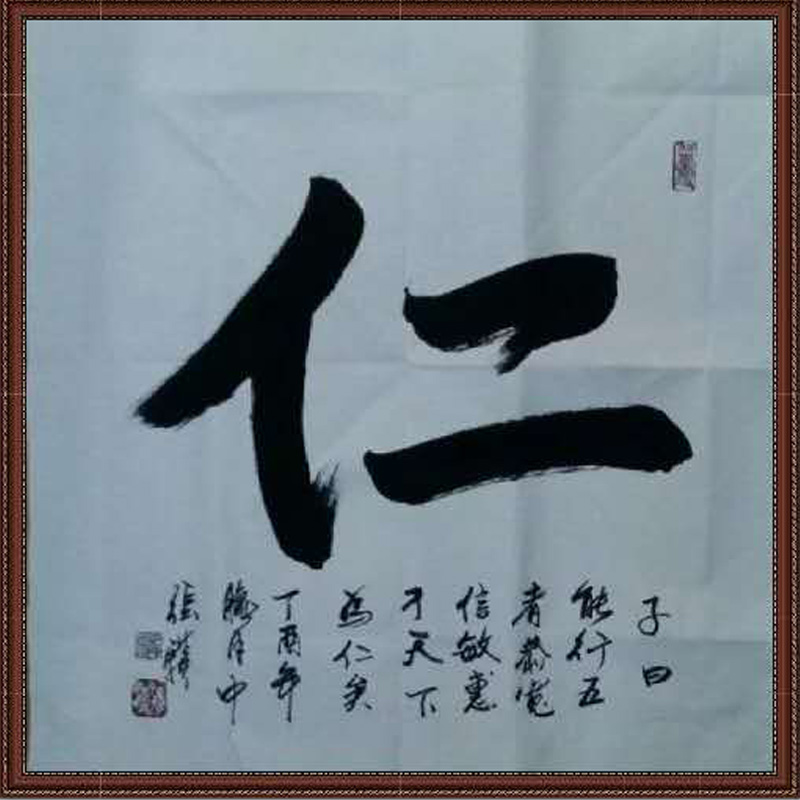 仁
子曰
能行五
者恭宽
信敏惠
于天下
為仁矣
丁酉年
臘月中
張騰